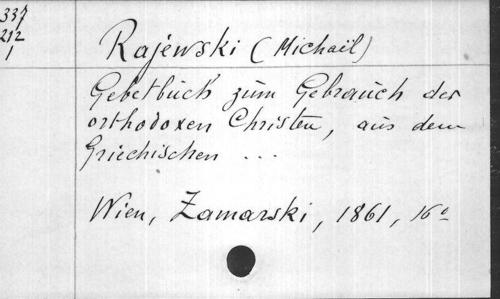 337
212
1
Rajéwski (Michaïl)
Gebetbuch zum Gebrauch der
orthodoxen Christen, aus dem
Griechischen ...
Wien, Zamarski, 1861, 16º